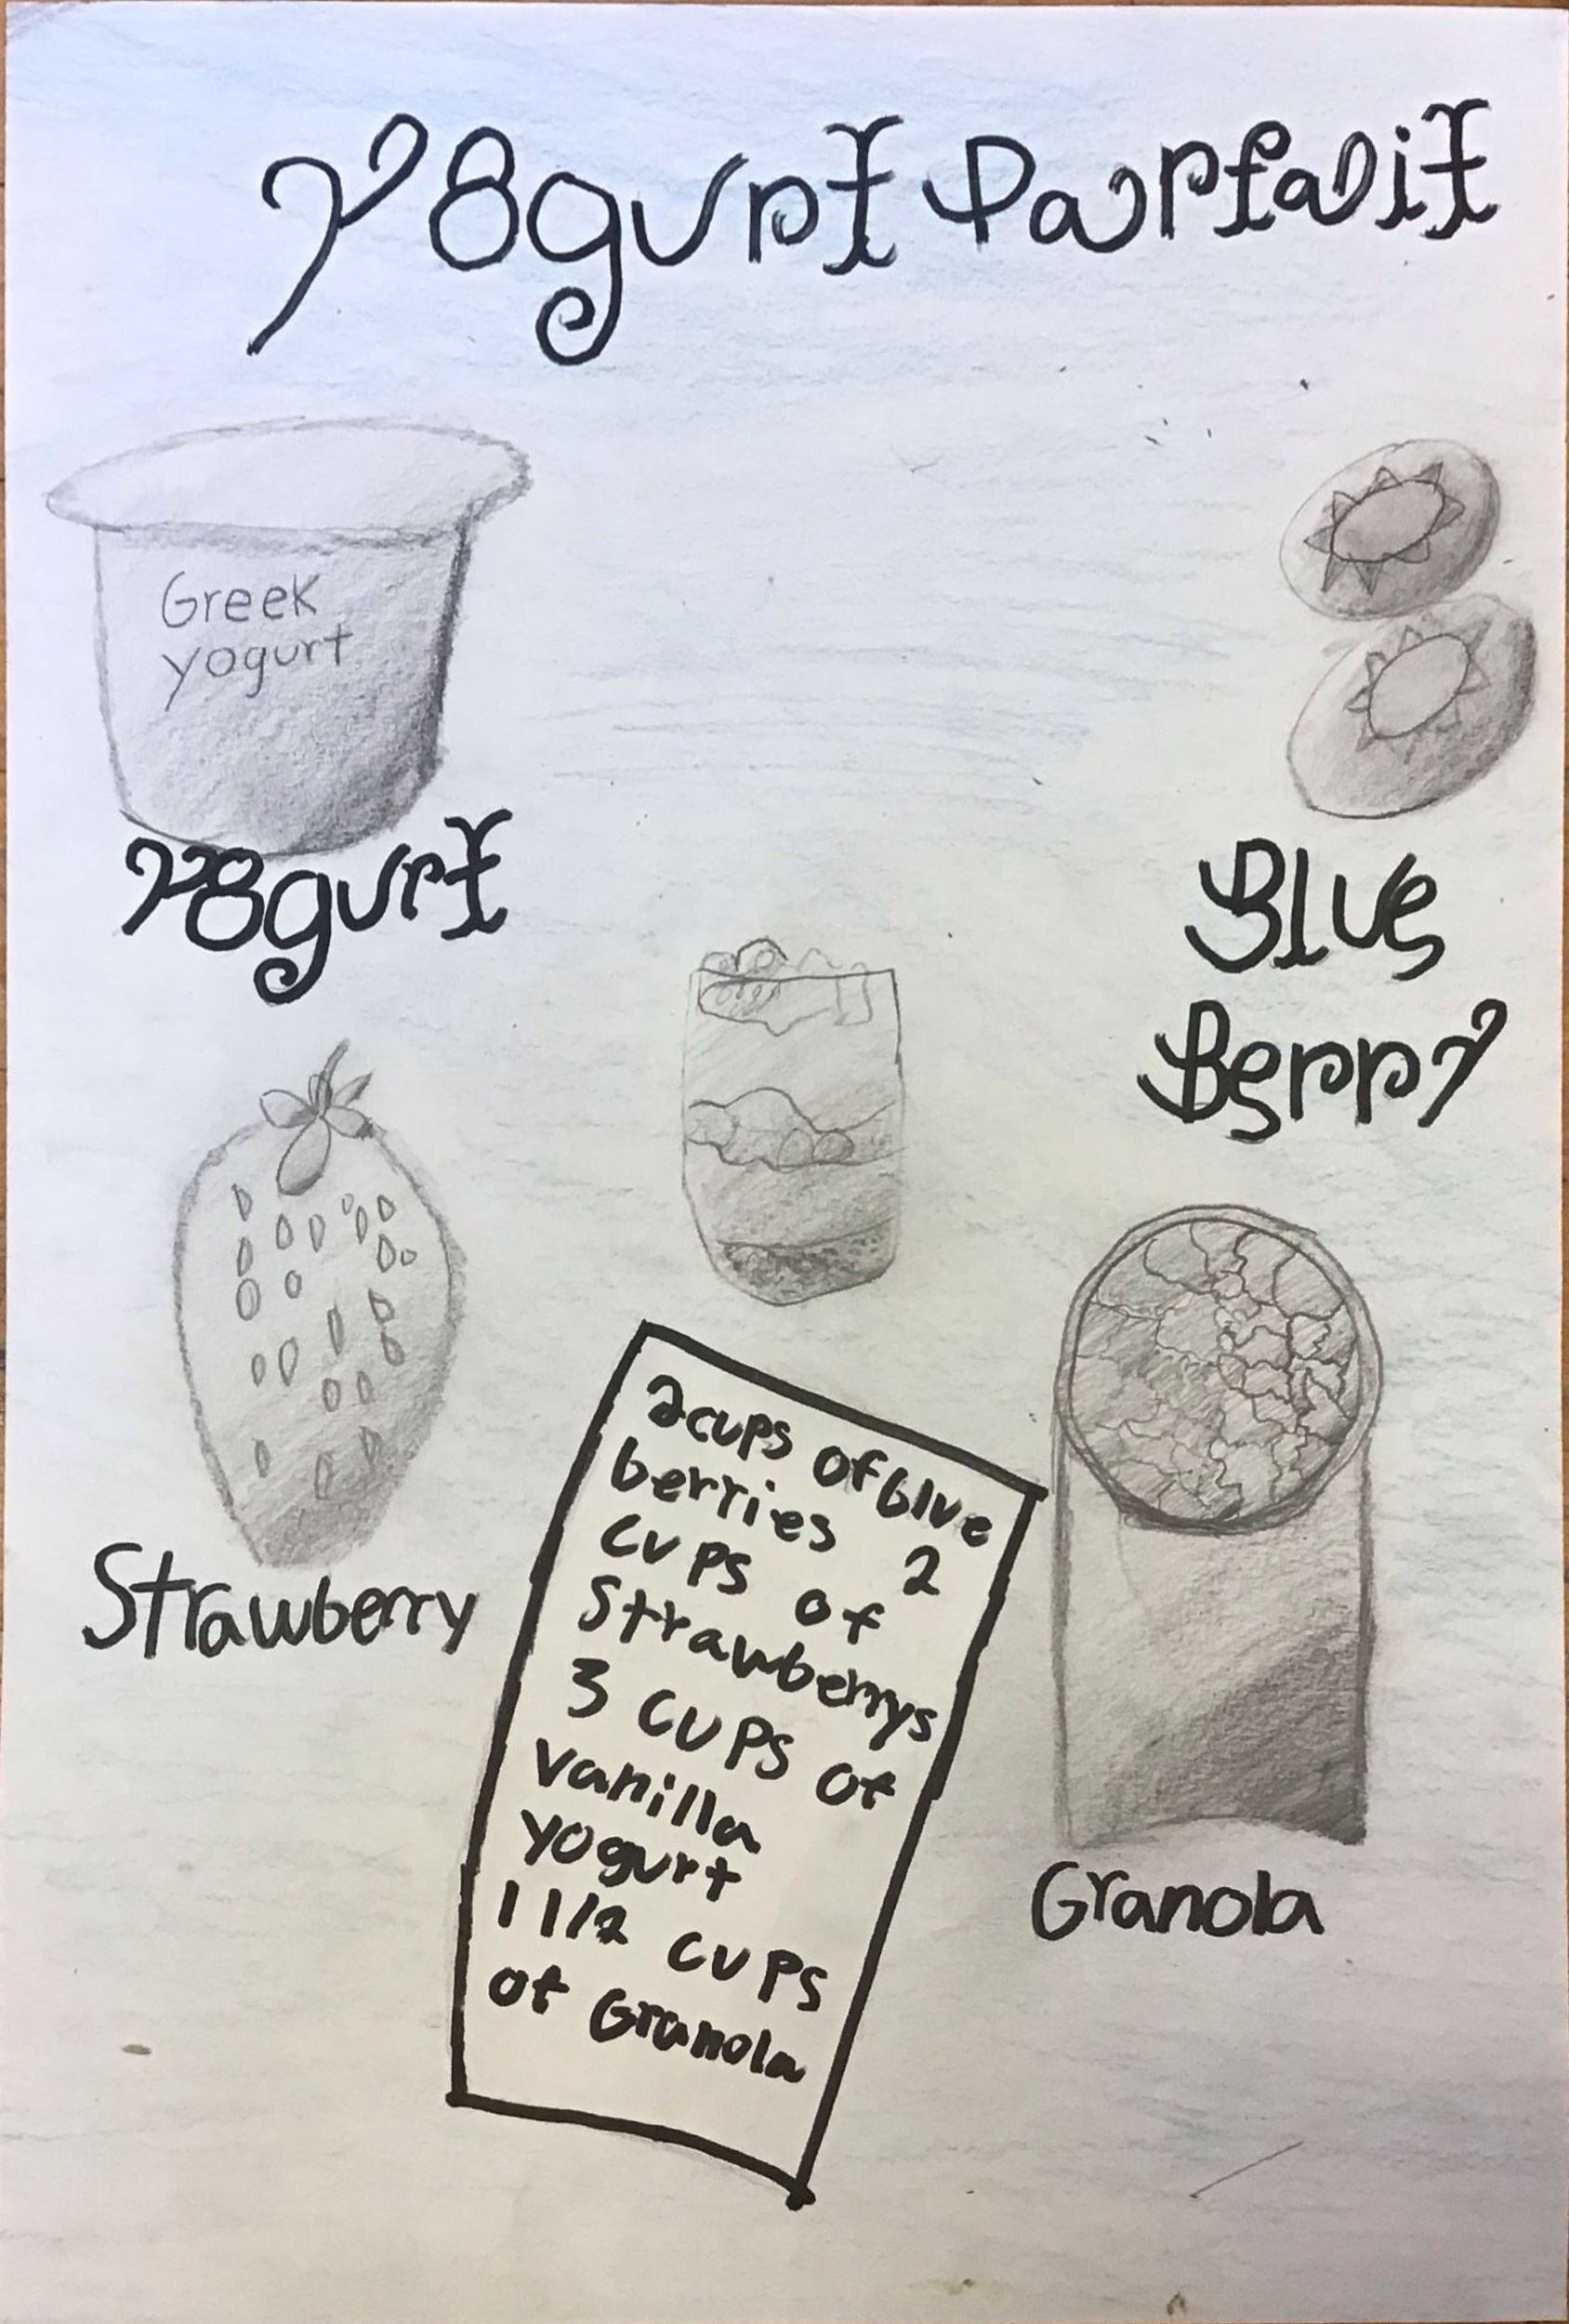 Yogurt Parfait
Greek
yogurt
Yogurt
Blue
Berry
Strawberry
2cups of blue
berries 2
cups of
Strawberrys
3 cups of
vanilla
yogurt
1 1/2 cups
of Granola
Granola